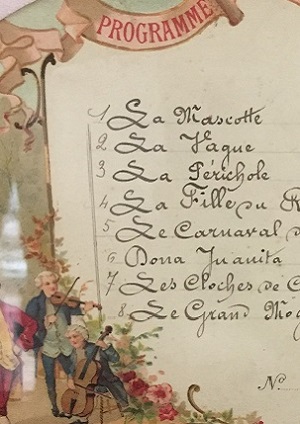 PROGRAMME
1 La Mascotte
2 La Vague
3 La Périchole
4 La Fille du
5 Le Carnaval
6 Dona Juanita
7 Les Cloches de C
8 Le Grand Mog
No